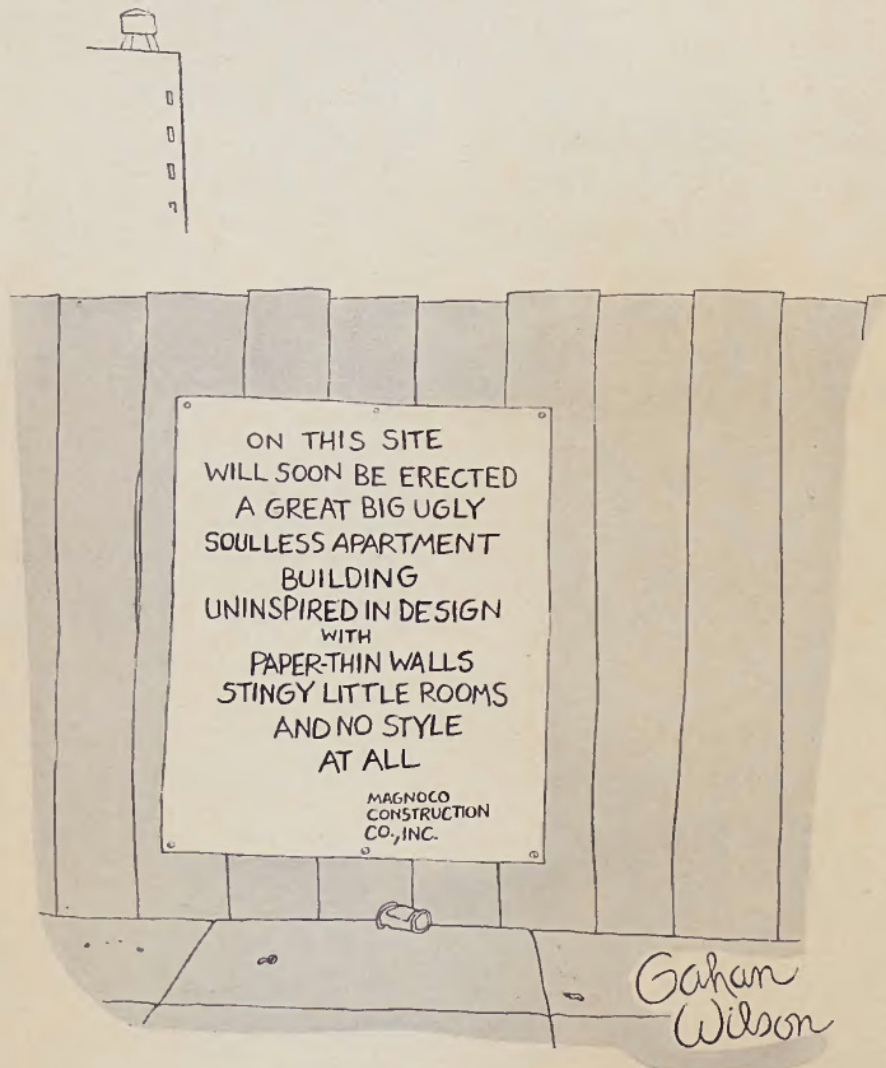 ON THIS SITE
WILL SOON BE ERECTED
A GREAT BIG UGLY
SOULLESS APARTMENT
BUILDING
UNINSPIRED IN DESIGN
WITH
PAPER-THIN WALLS
STINGY LITTLE ROOMS
AND NO STYLE
AT ALL
MAGNOCO
CONSTRUCTION
CO., INC.
Gahan
Wilson